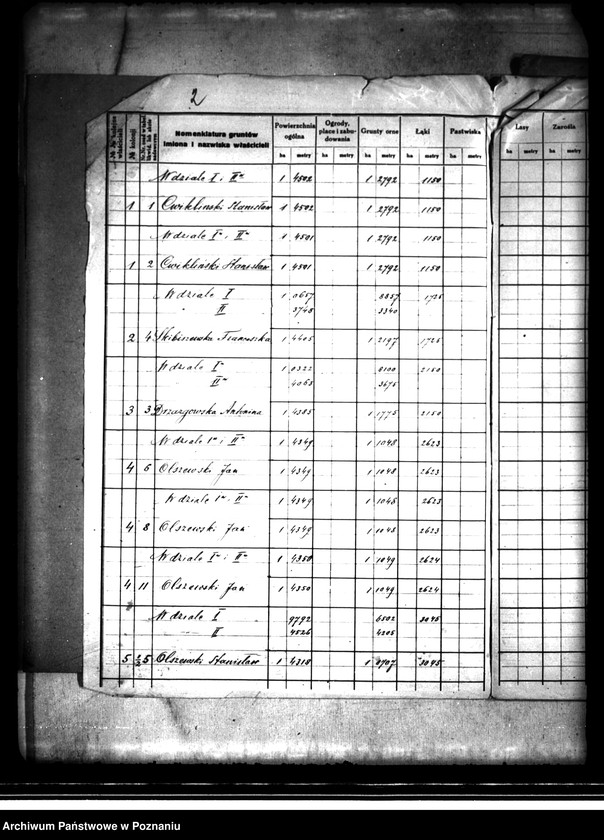 2
№ № kolejne właścicieli
№ kolonji
Nomenklatura gruntów
Imiona i nazwiska właścicieli
Powierzchnia ogólna
Ogrody, place i zabudowania
Grunty orne
Łąki
Pastwiska
Lasy
Zarośla
ha metry ha metry ha metry ha metry ha metry ha metry ha metry
W dziale I i II 1 4502 1 2792 1150
1 1 Cwikliński Stanisław 1 4502 1 2792 1150
W dziale I i II 1 4501 1 2792 1150
1 2 Cwikliński Stanisław 1 4501 1 2792 1150
W dziale I 1 0657 8857 1725
" II 3748 3340
2 4 Skibiszewska Franciszka 1 4405 1 2197 1725
W dziale I 1 0322 8100 2150
II 4063 3675
3 3 Antonina 1 4385 1 1775 2150
W dziale I i II 1 4349 1 1048 2623
4 6 Olszewski Jan 1 4349 1 1048 2623
W dziale I i II 1 4349 1 1048 2623
4 8 Olszewski Jan 1 4349 1 1048 2623
W dziale I i II 1 4350 1 1049 2624
4 11 Olszewski Jan 1 4350 1 1049 2624
W dziale I 9792 6502 3045
II 4526 4205
5 5 Olszewski Stanisław 1 4318 1 0707 3045
Archiwum Państwowe w Poznaniu